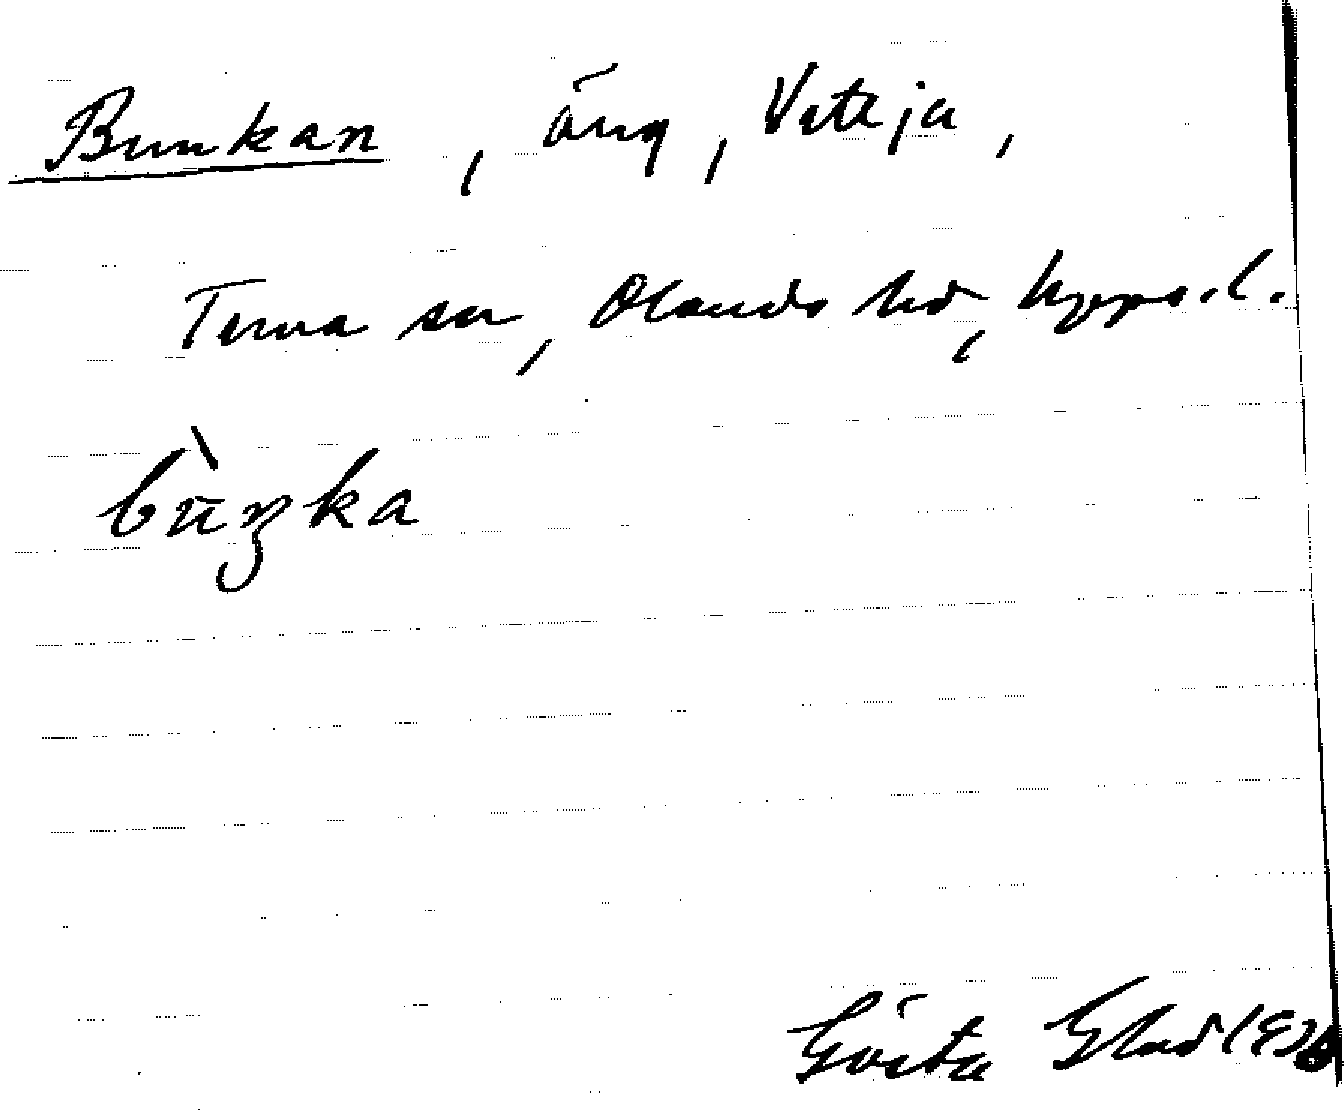 Bunkan, äng, Veteja,
Tuna sn, Olands hd, Upps.l.
bùŋka
Gösta Glad